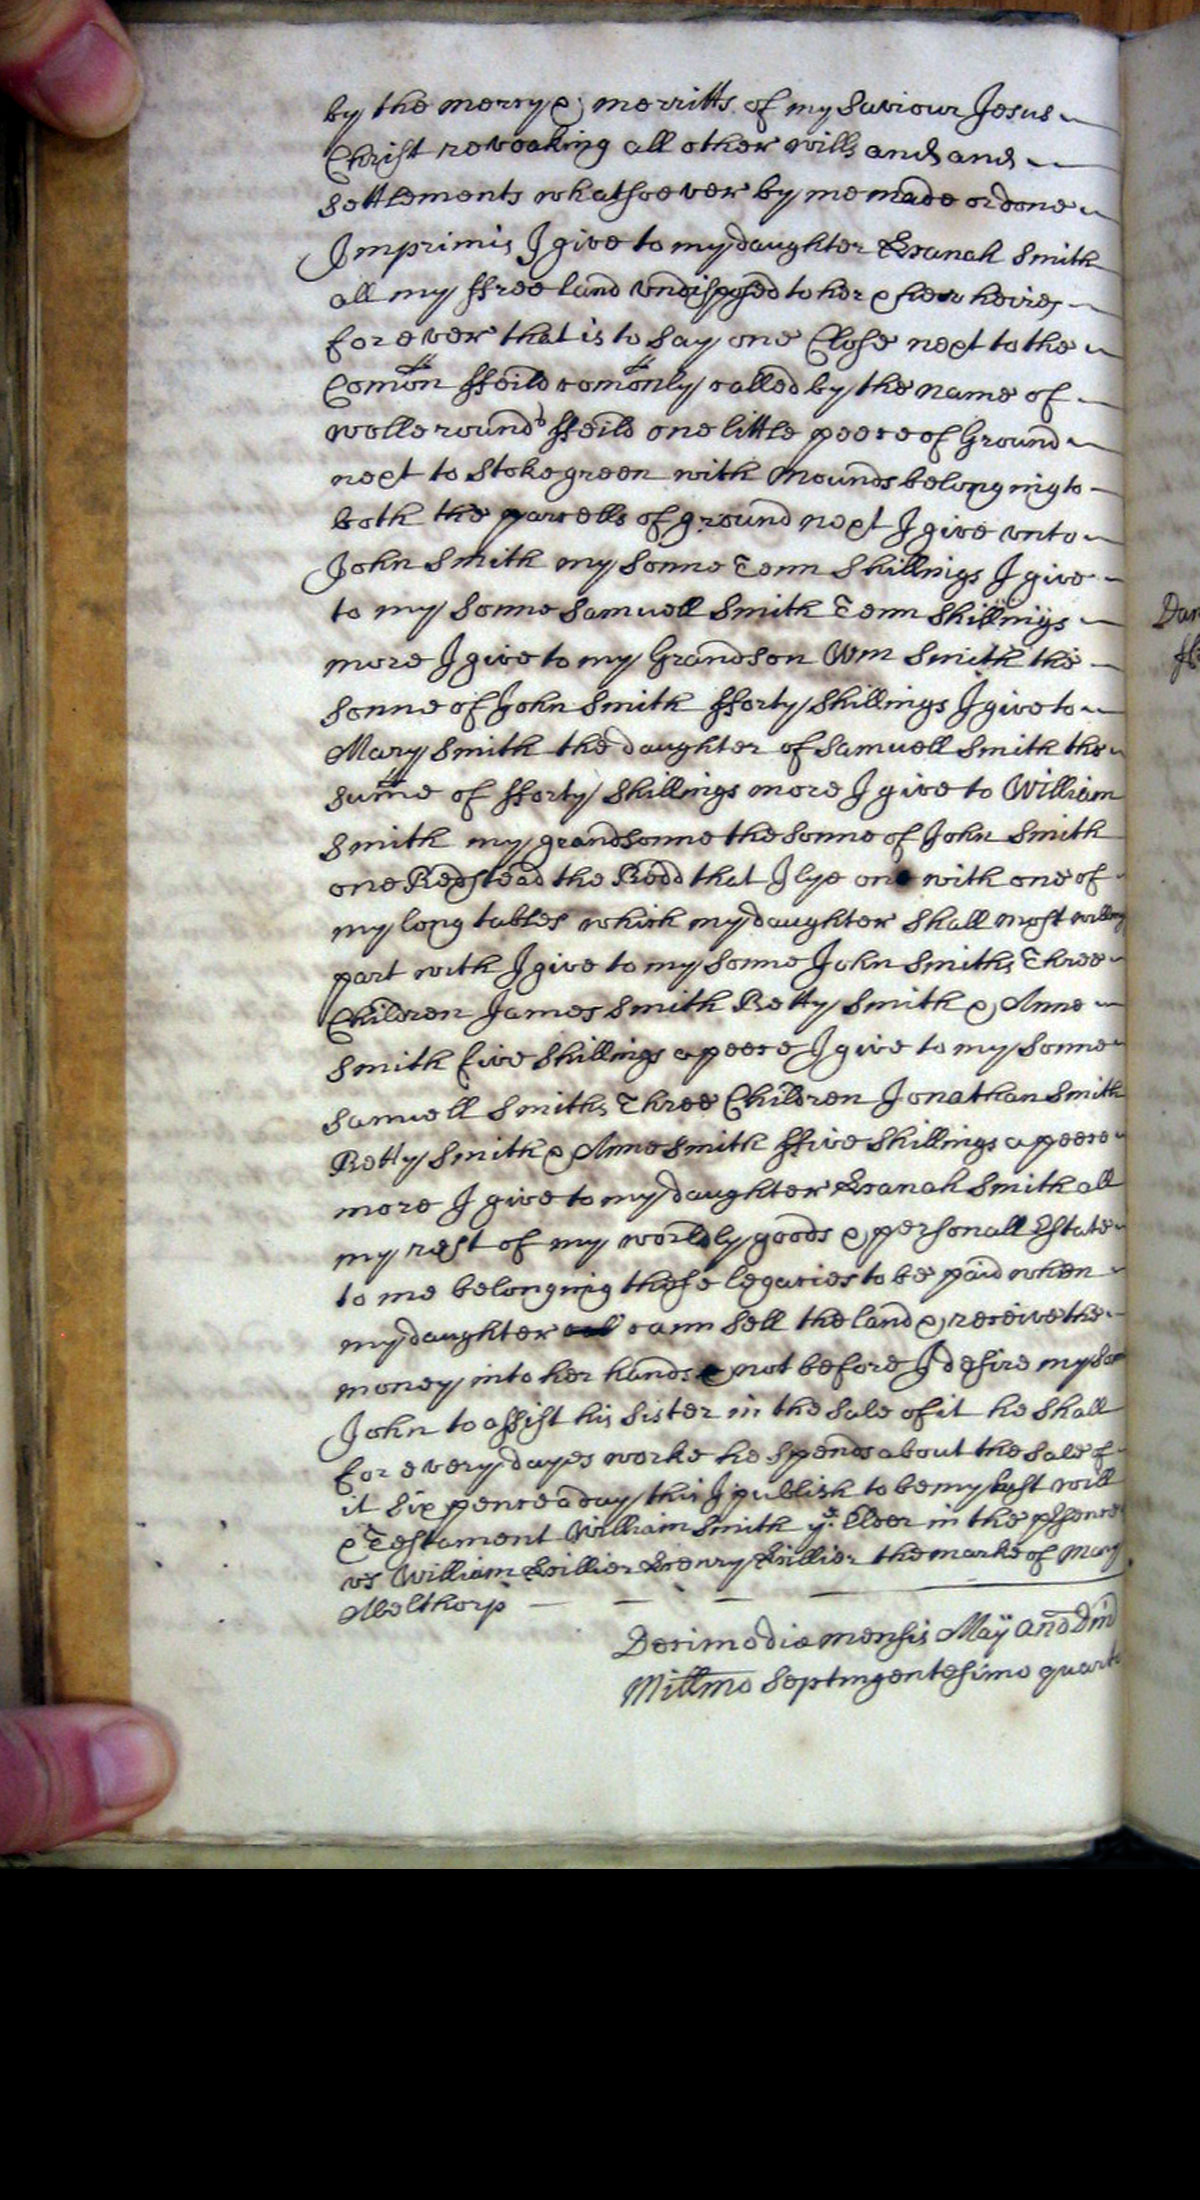 by the mercy & merritts of my Saviour Jesus
Christ revoaking all other wills and and
settlements whatsoever by me made or done
Imprimis I give to my daughter Hanah Smith
all my ffree land undisposed to her & her heires
for ever that is to say one Close next to the
Comon ffeild comonly called by the name of
ffeild one little peece of Ground
next to Stoke green with Mounds belonging to
both the parcells of ground next I give unto
John Smith my Sonne Tenn Shillings I give
to my Sonne Samuell Smith Tenn Shillings
more I give to my Grandson Wm Smith the
Sonne of John Smith fforty Shillings I give to
Mary Smith the daughter of Samuell Smith the
sume of fforty Shillings more I give to William
Smith my grandsonne the Sonne of John Smith
one Bedstead the Bedd that I lye one with one of
my long tables which my daughter Shall most willing
part with I give to my Sonne John Smiths Three
Children James Smith Betty Smith & Anne
Smith five Shillings a peece I give to my Sonne
Samuell Smiths Three Children Jonathan Smith
Betty Smith & Anne Smith ffive Shillings a peece
more I give to my daughter Hanah Smith all
my rest of my worldly goods & personall Estate
to me belonging those legacies to be paid when
my daughter cann sell the land & receive the
money into her hands & not before I desire my Son
John to assist his Sister in the Sale of it he Shall
for every dayes worke he spends about the Sale of
it six pence a day this I publish to be my last will
& Testament William Smith ye Elder in the psence
us William Hillier Henry Hillier the marke of Mary
Abelthorp
Decimo die mensis Maÿ Año Dñi
Millmo Septingentesimo quarto
Dan